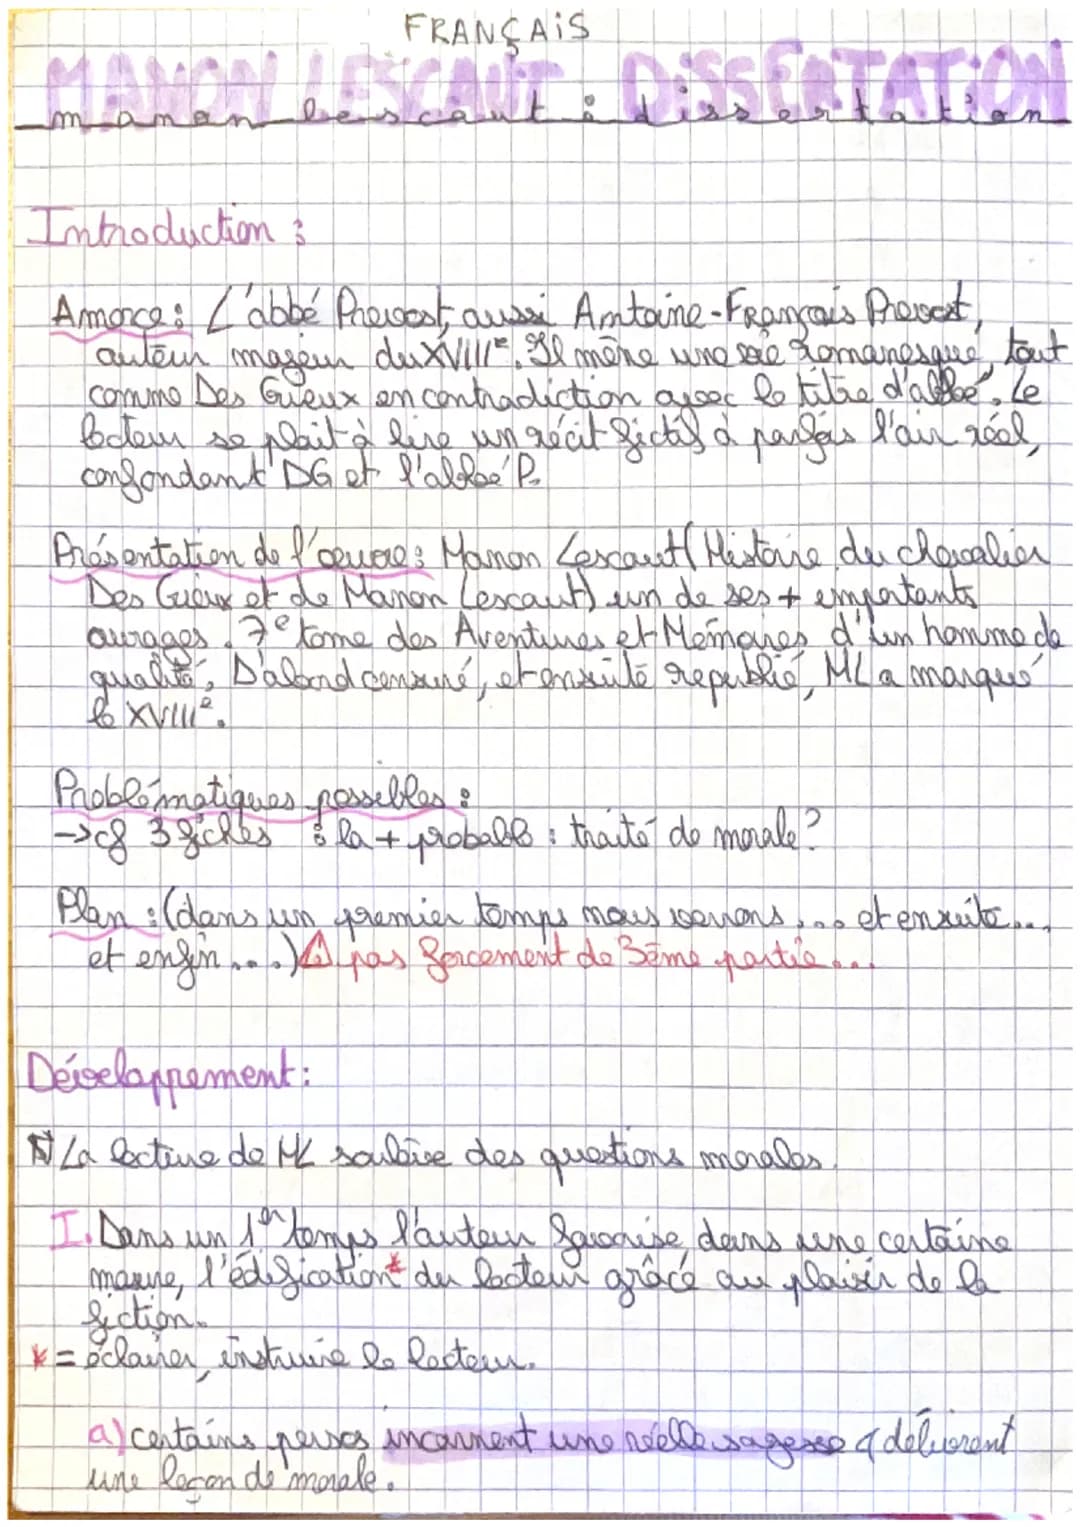 FRANÇAIS
MANON LESCAUT DISSERTATION
manon lescaut : dissertation
Introduction :
Amorce : L'abbé Prevost, aussi Antoine-François Prevost,
auteur majeur du XVIIIe. Il mène une vie romanesque, tout
comme Des Grieux en contradiction avec le titre d'abbé. Le
lecteur se plait à lire un récit fictif à parfois l'air réel,
confondant DG et l'abbé P.
Présentation de l'œuvre : Manon Lescaut (Histoire du chevalier
Des Grieux et de Manon Lescaut) un de ses + importants
ouvrages. 7e tome des Aventures et Mémoires d'un homme de
qualité. D'abord censuré, et ensuite republié, ML a marqué
le XVIIIe.
Problématiques possibles :
→ cf 3 fiches : la + probable : traité de morale ?
Plan : (dans un premier temps nous verrons ... et ensuite ...
et enfin ...) ⚠ pas forcement de 3ème partie ...
Développement :
La lecture de ML soulève des questions morales.
I. Dans un 1er temps l'auteur favorise, dans une certaine
mesure, l'édification* du lecteur grâce au plaisir de la
fiction.
* = éclairer, instruire le lecteur.
a) certains persos incarnent une réelle sagesse & délivrent
une leçon de morale.